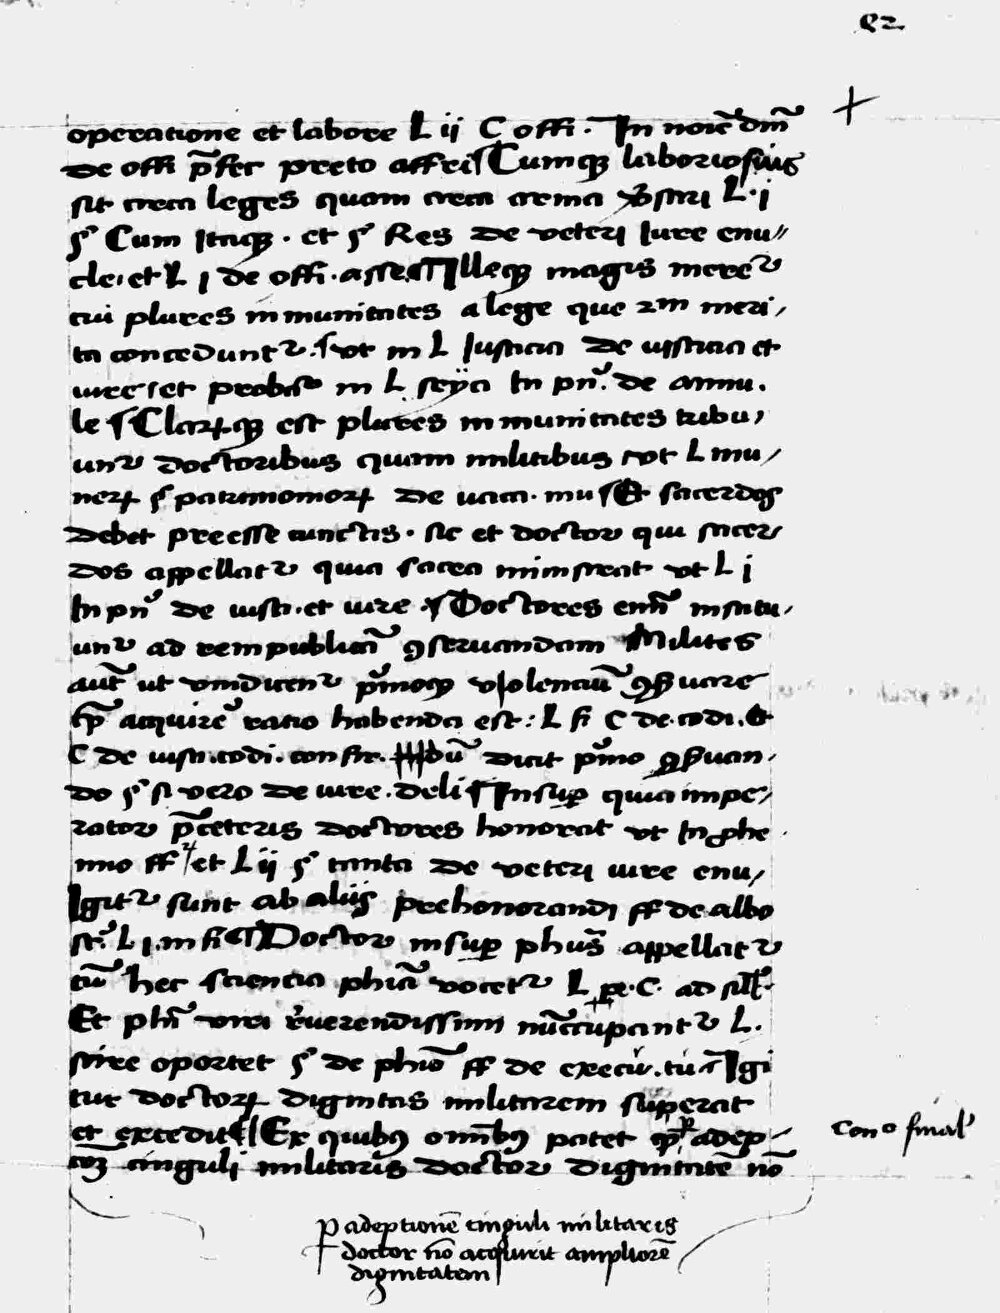 92
operatione et labore L ij C offi. In noīe dm̄
de offi p̄fec preto affrī ¶ Cumq3 laboriosius
sit circa leges quam circa arma v̄sari L. j
§ Cum Itaq3. et § Res de veteri Iure enu//
cle. et L j de offi. asse. ¶ Illeq3 magis mere
tui plures inmunitates a lege que 2m meri/
ta conceduntr. ¶ vt in L Iusticia de iusticia et
iure ¶ et probat in L seÿa In pn. de annu.
le ¶ Clarumq3 est plures inmunitates tribu/
untr doctoribus quam militibus vt L mu/
nerum § patrimoniorum de vaca. mu ¶ Et sacerdos
debet preesse cunctis. sic et doctor qui sacer
dos appellatr quia sacra ministrat vt L j
In pn de iusti. et iure. ¶ Doctores enim institu/
untr ad rempublicā 9servandam Milites
aut̄ ut vindicentr p̄moq3 violenciā 9s̄uare
q̄ acquire ratio habenda est: L fi C de. codi. Et
C de iusti. codi. confir. bū dicit p̄mo 9s̄uan/
do § si vero de iure. deli ¶ Insup quia impe/
rator p̄ceteris doctores honorat vt In phe
mio ff et L ij § tanta de veteri iure enu/
Igitr sunt ab aliis prehonorandi ff de albo
scr. L j. in fi ¶ Doctor insup phus appellatr
cū hec sciencia phīa vocetr L pe. C. ad sill.
Et phī viri r̄verendissimi nūccupantr L.
scire oportet § de phīo ff de execu. tu ¶ Igi
tur doctorum dignitas militarem superat
et excedit ¶ Ex quibus omībus patet q̄ p adep/
cōem cinguli militaris doctor dignitatē nō
cono finalˀ
p adeptionē cinguli militaris
doctor nō acquirit ampliorē
dignitatem